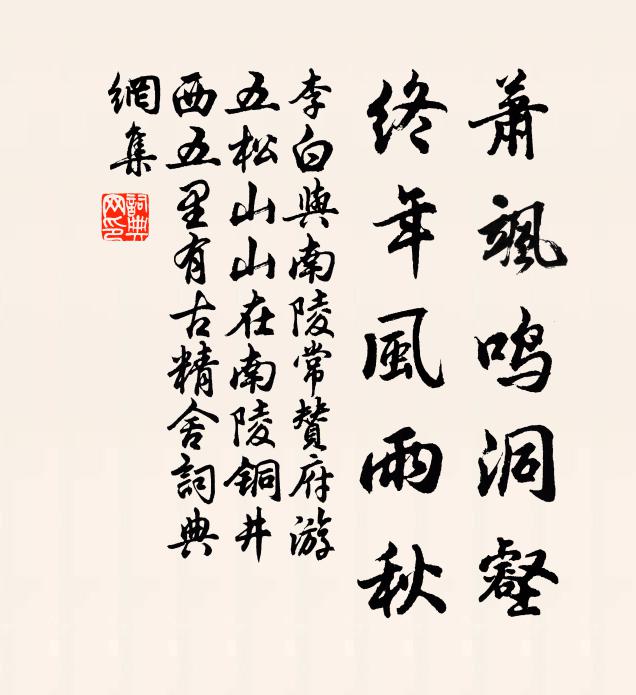 蕭颯鳴洞壑
終年風雨秋
李白與南陵常贊府游
五松山山在南陵銅井
西五里有古精舍詞典
網集
詞典
网印